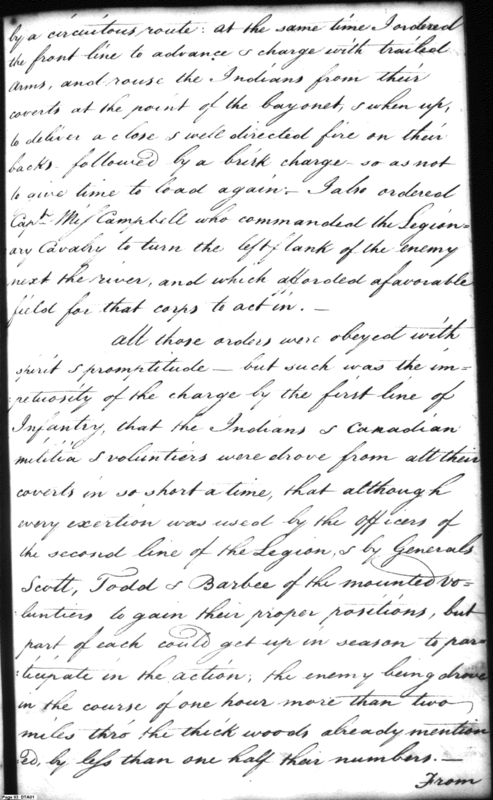 by a circuitous route: at the same time I ordered
the front line to advance & charge with trailed
arms, and rouse the Indians from their
coverts at the point of the bayonet, & when up,
to deliver a close & well directed fire on their
backs followed by a brisk charge so as not
to give time to load again — I also ordered
Capt. Mis Campbell who commanded the Legion=
ary Cavalry to turn the left flank of the enemy
next the river, and which afforded a favorable
field for that corps to act in. —
All those orders were obeyed with
spirit & promptitude — but such was the im=
=petuosity of the charge by the first line of
Infantry, that the Indians & Canadian
militia & voluntiers were drove from all their
coverts in so short a time, that although
every exertion was used by the officers of
the second line of the Legion, & by Generals
Scott, Todd & Barbee of the mounted vo=
luntiers to gain their proper positions, but
part of each could get up in season to par=
:ticipate in the action; the enemy being drove
in the course of one hour more than two
miles thro the thick woods already mention
ed, by less than one half their numbers. —
From
Page 53 DTA01